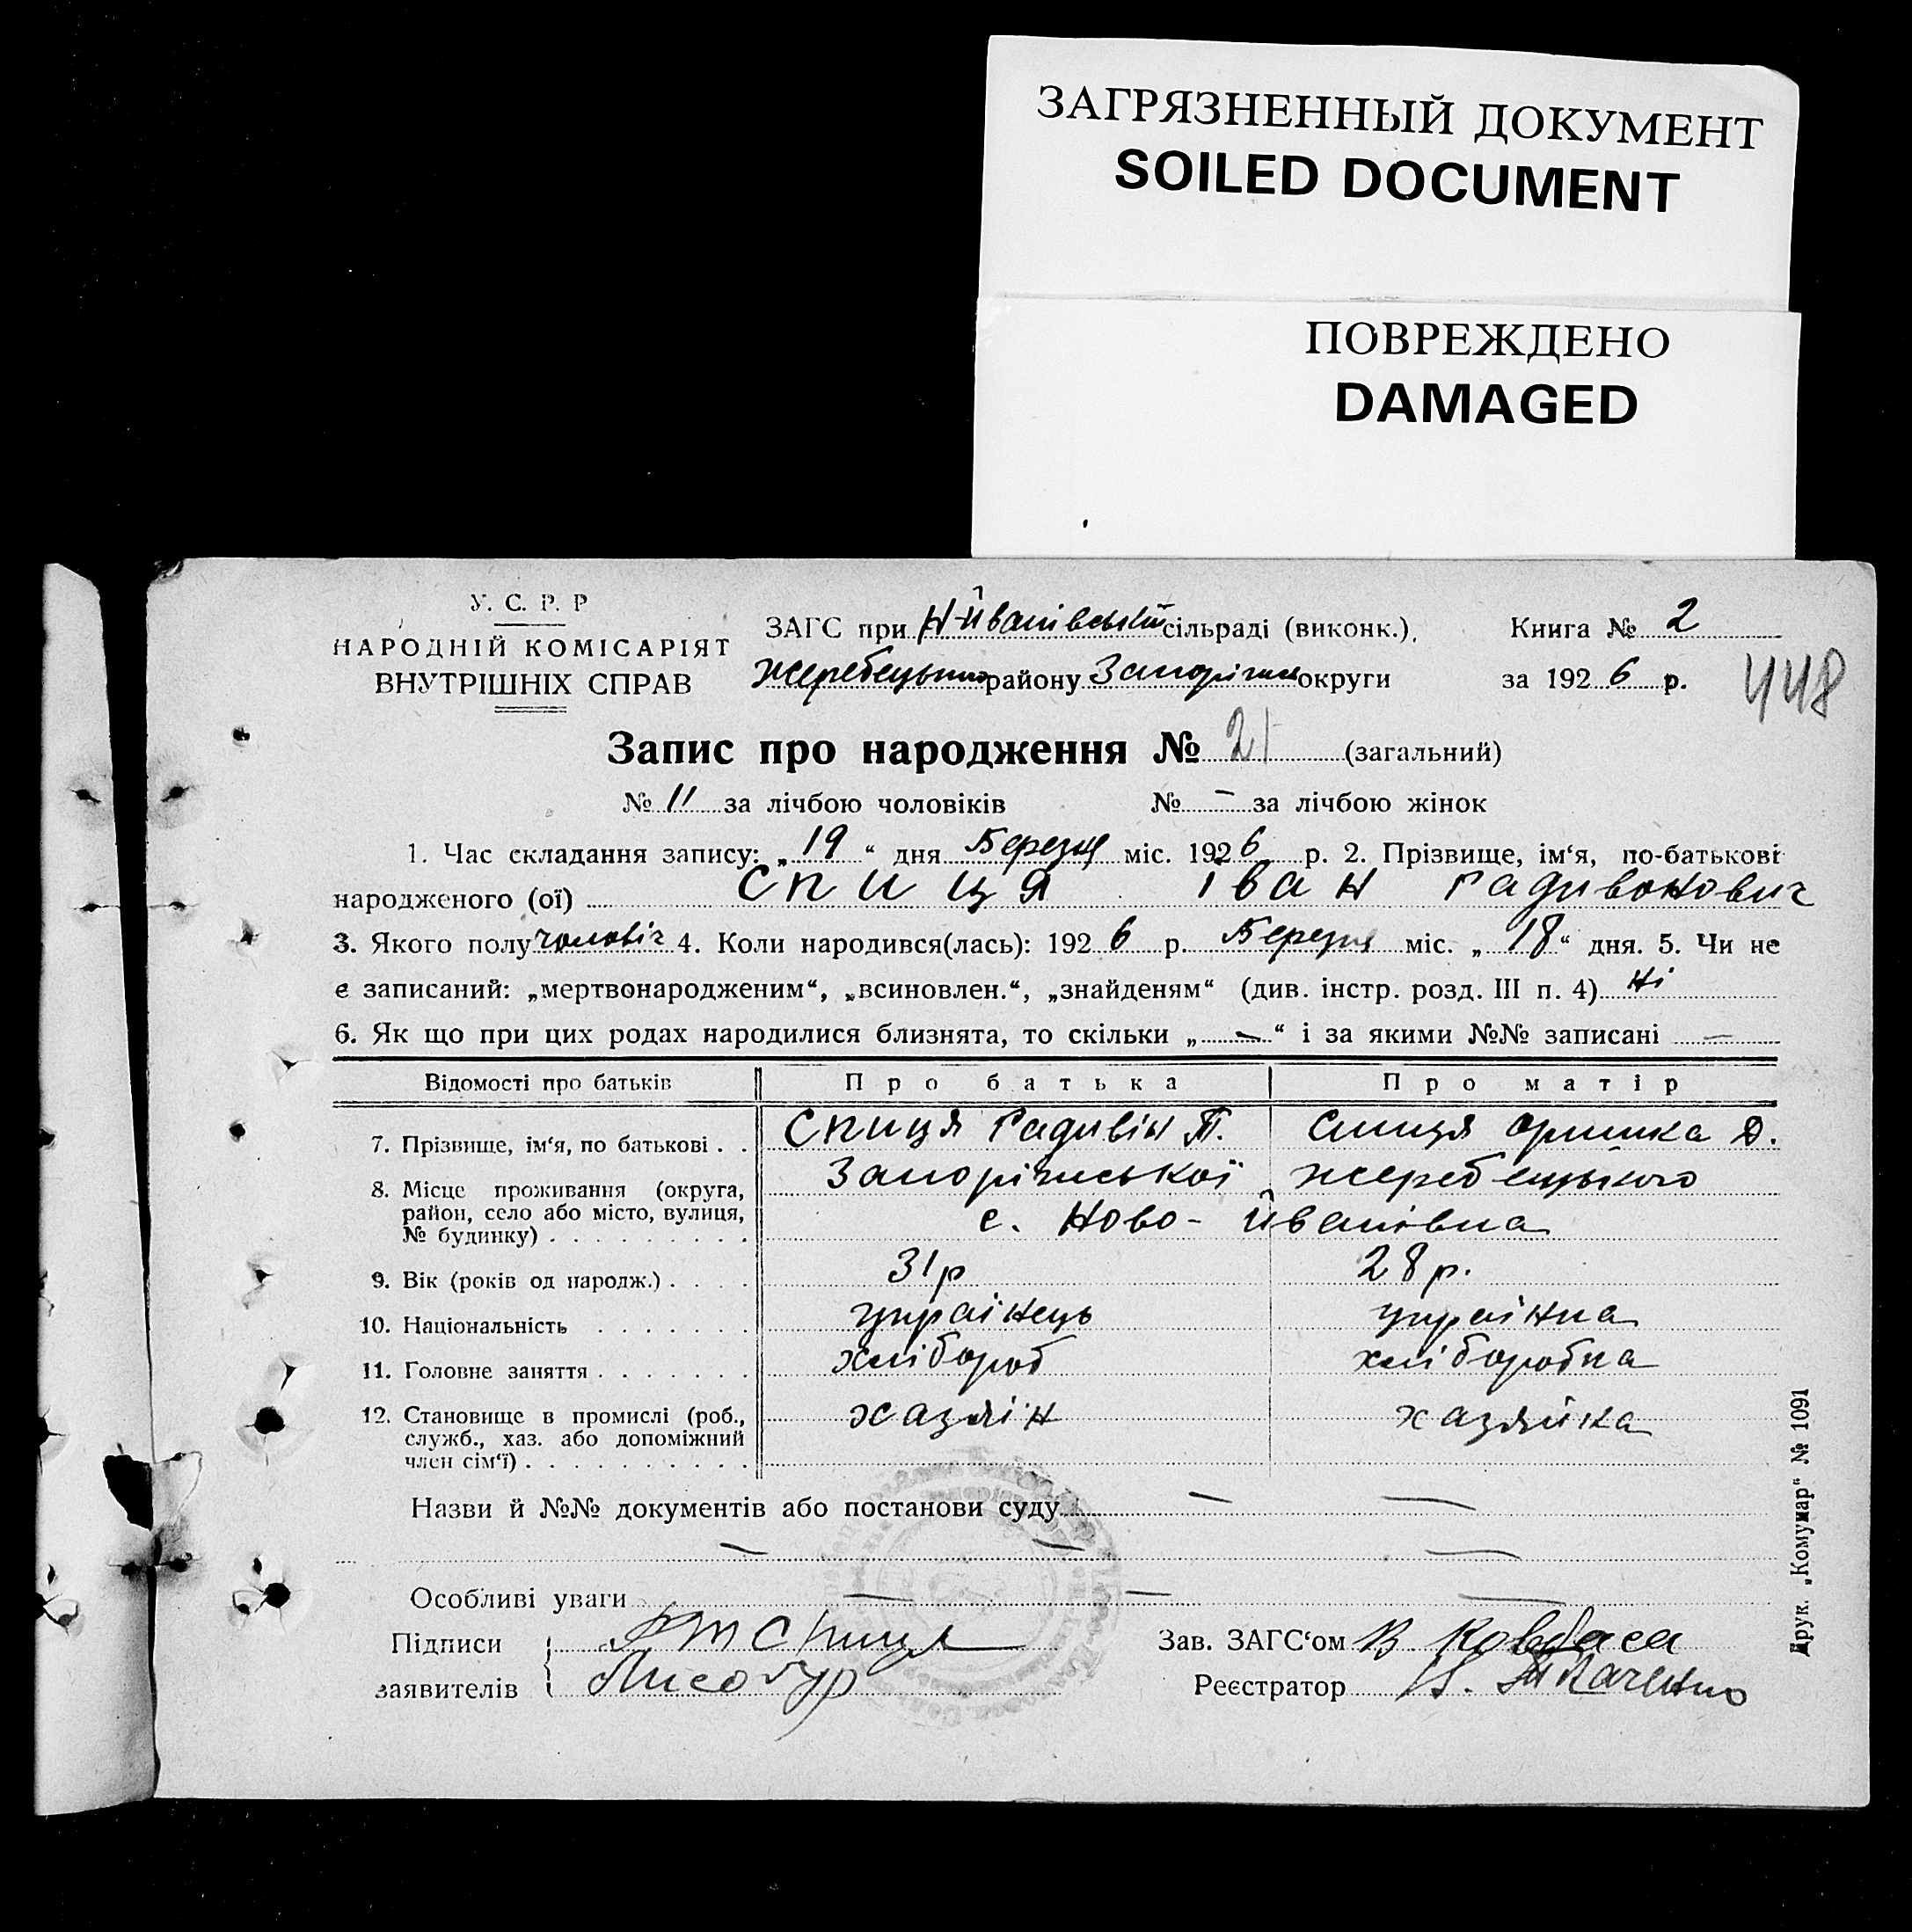 ЗАГРЯЗНЕННЫЙ ДОКУМЕНТ
SOILED DOCUMENT
ПОВРЕЖДЕНО
DAMAGED
У. С. Р. Р
НАРОДНІЙ КОМІСАРІЯТ
ВНУТРІШНІХ СПРАВ
ЗАГС при Н-Йванівській сільраді (виконк.), Книга № 2
Жеребецького району Запоріжськ округи за 1926 р.
448
Запис про народження № 21 (загальний)
№ 11 за лічбою чоловіків № – за лічбою жінок
1. Час складання запису: „19“ дня Березня міс. 1926 р. 2. Прізвище, ім‘я, по-батькові
народженого (ої) Спиця Іван Радивонович
3. Якого полу чоловіч 4. Коли народився(лась): 1926 р. Березня міс. „18“ дня. 5. Чи не
є записаний: „мертвонародженим“, „всиновлен.“, „знайденям“ (див. інстр. розд. III п. 4) Ні
6. Як що при цих родах народилися близнята, то скільки „–“ і за якими №№ записані –
Відомості про батьків Про батька Про матір
7. Прізвище, ім‘я, по батькові . . Спиця Радивін Т. Спиця Оришка Д.
8. Місце проживання (округа, Запоріжської Жеребецького
район, село або місто, вулиця,
№ будинку) . . . . . . . . . с. Ново-Йванівка
9. Вік (років од народж.) . . . . 31 р 28 р.
10. Національність . . . . . . . українець українка
11. Головне заняття . . . . . . . хлібороб хліборобка
12. Становище в промислі (роб., хазяїн хазяйка
служб., хаз. або допоміжний
член сім‘ї) . . . . . . . . . .
Назви й №№ документів або постанови суду – –
– – –
Особливі уваги – – –
Підписи Спиця Зав. ЗАГС‘ом В Ковбаса
заявителів Лисогур Реєстратор Ткаченко
Друк. „Комунар“ № 1091